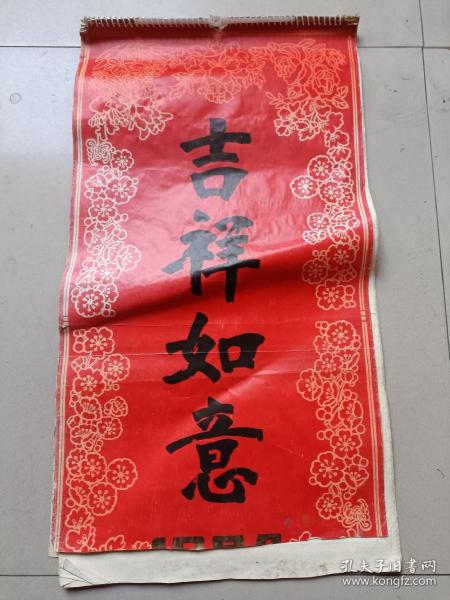 吉祥如意
孔夫子旧书网
www.kongfz.com